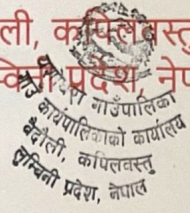 ली, कपिलवस्तु
प्रदेश, नेप
यशोधरा गाउँपालिका
गाउँ कार्यपालिकाको कार्यालय
बैदौली, कपिलवस्तु
लुम्बिनी प्रदेश, नेपाल